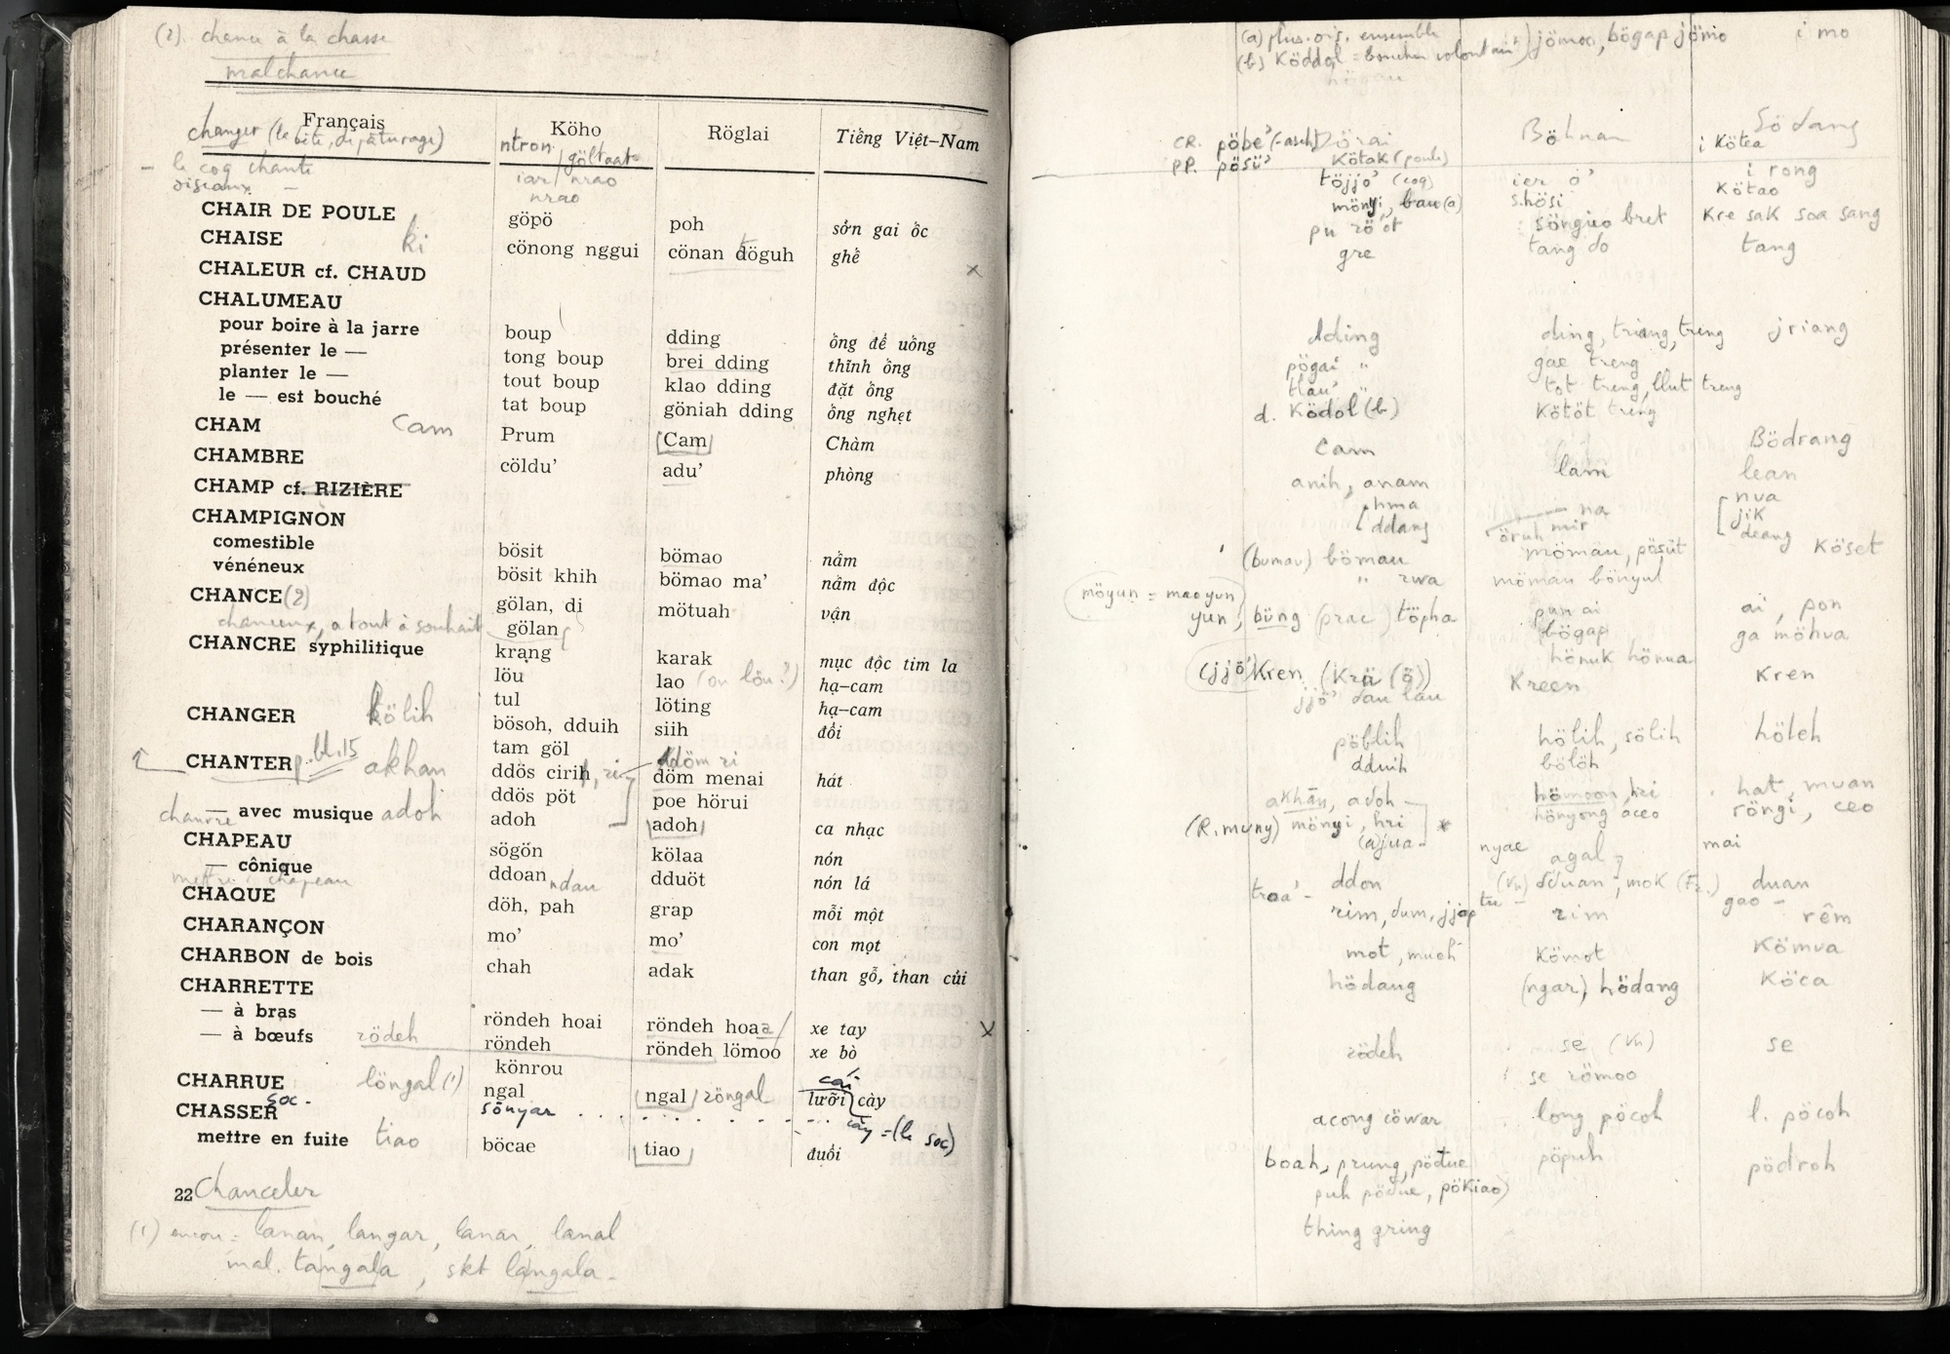 (2). chance à la chasse
malchance
Français Köho Röglai Tiếng Việt–Nam
changer (le bête, de pâturage) ntron / göltaat
le coq chante iar / nrao
oiseaux — nrao
CHAIR DE POULE göpö poh sởn gai ốc
CHAISE ki cönong nggui cönan döguh ghế
CHALEUR cf. CHAUD x
CHALUMEAU
pour boire à la jarre boup dding ống để uống
présenter le — tong boup brei dding thỉnh ống
planter le — tout boup klao dding đặt ống
le — est bouché tat boup göniah dding ống nghẹt
CHAM Cam Prum Cam Chàm
CHAMBRE cöldu’ adu’ phòng
CHAMP cf. RIZIÈRE
CHAMPIGNON
comestible bösit bömao nấm
vénéneux bösit khih bömao ma’ nấm độc
CHANCE (2) gölan, di mötuah vận
chanceux, a tout à souhait gölan
CHANCRE syphilitique krạng karak mục độc tim la
löu lao (ou löu?) hạ–cam
tul löting hạ–cam
CHANGER kölih bösoh, dduih siih đổi
tam göl
CHANTER p. bl. 15 akhan ddös cirih, ri döm menai hát
ddöm ri
ddös pöt poe hörui
chanvre — avec musique adoh adoh adoh ca nhạc
CHAPEAU sögön kölaa nón
— cônique ddoan ndau dduöt nón lá
mettre chapeau
CHAQUE döh, pah grap mỗi một
CHARANÇON mo’ mo’ con mọt
CHARBON de bois chah adak than gỗ, than củi
CHARRETTE
— à bras röndeh hoai röndeh hoaa xe tay x
— à bœufs rödeh röndeh röndeh lömoo xe bò
könrou
CHARRUE löngal (1) ngal ngal röngal lưỡi cày
cái
soc - sönyar cày = (le soc)
CHASSER
mettre en fuite tiao böcae tiao đuổi
22 Chanceler
(1) encou = lanan, langar, lanar, lanal
mal. tangala, skt langala -
(a) plus. ois. ensemble jömoo, bögap jömö i mo
(b) Ködol = boucher volontair
CR. pöbe’ (-auch) Jörai Böhnan Södang
PP. pösü’ kötak (poule) i Kötea
töjjo’ (coq) ier ö’ i rong
mönyi, bau (a) s.hösi Kötao
pu rö’öt söngieo bret Kre sak soa sang
gre tang do tang
dding ding, triang, treng jriang
pögai " gae treng
tlau’ " tot treng, llut treng
d. Ködol (b) Kötöt treng
Cam Bödrang
anih, anam lam lean
hma na nua
ddang öruh mir jik
deang
(bumau) bömau mömau, pösüt Köset
" rwa mömau bönyul
möyun = mao yun
yun, büng (prae) töpha pun ai ai, pon
bögap ga möhva
hönuk hönua
(jjö’) Kren (Krä (ö)) Kreen Kren
jjö’ dau lau
pöblih hölih, sölih höleh
dduih bölöh
akhãn, adoh hömoon, hri hat, muan
(R. muny) mönyi, hri * hönyong aceo röngi, ceo
(a)jua nyae agal mai
ddon (Vn) döuan, mok (Fr.) duan
troa’ - tru — gao —
rim, dum, jjap rim rêm
mot, mueh Kömot Kömva
hödang (ngar) hödang Köca
rödeh se (Vn) se
se römoo
acong cöwar long pöcoh l. pöcoh
boah, prung, pödue pöpuh pödroh
puh pödue, pökiao)
thing gring